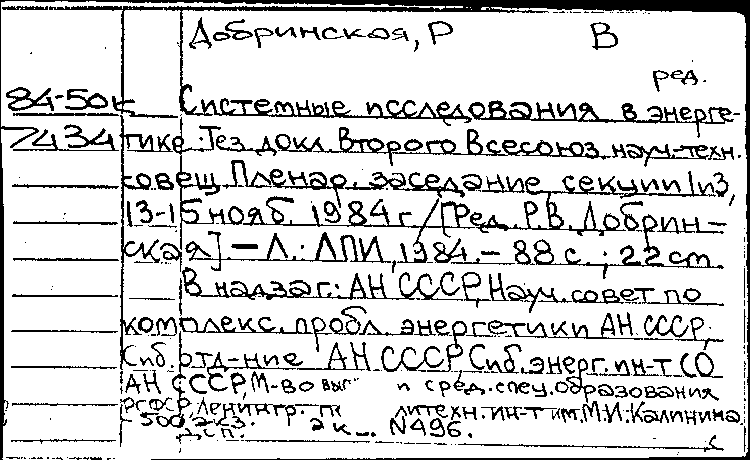 Добринская, Р В
ред.
84-50к Системные исследования в энерге-
7434 тике: Тез. докл. Второго Всесоюз. науч.-техн.
совещ. Пленар. заседание, секции 1 и 3,
13-15 нояб. 1984 г. / [Ред. Р.В. Добрин-
ская] – Л.: ЛПИ, 1984. – 88 с.; 22 cm.
В надзаг.: АН СССР, Науч. совет по
комплекс. пробл. энергетики АН СССР,
Сиб. отд-ние АН СССР, Сиб. энерг. ин-т СО
АН СССР, М-во выс и сред. спец. образования
РСФСР, Ленингр. литехн. ин-т им. М.И. Калинина
500 экз. 2 к N496.
ДСП.